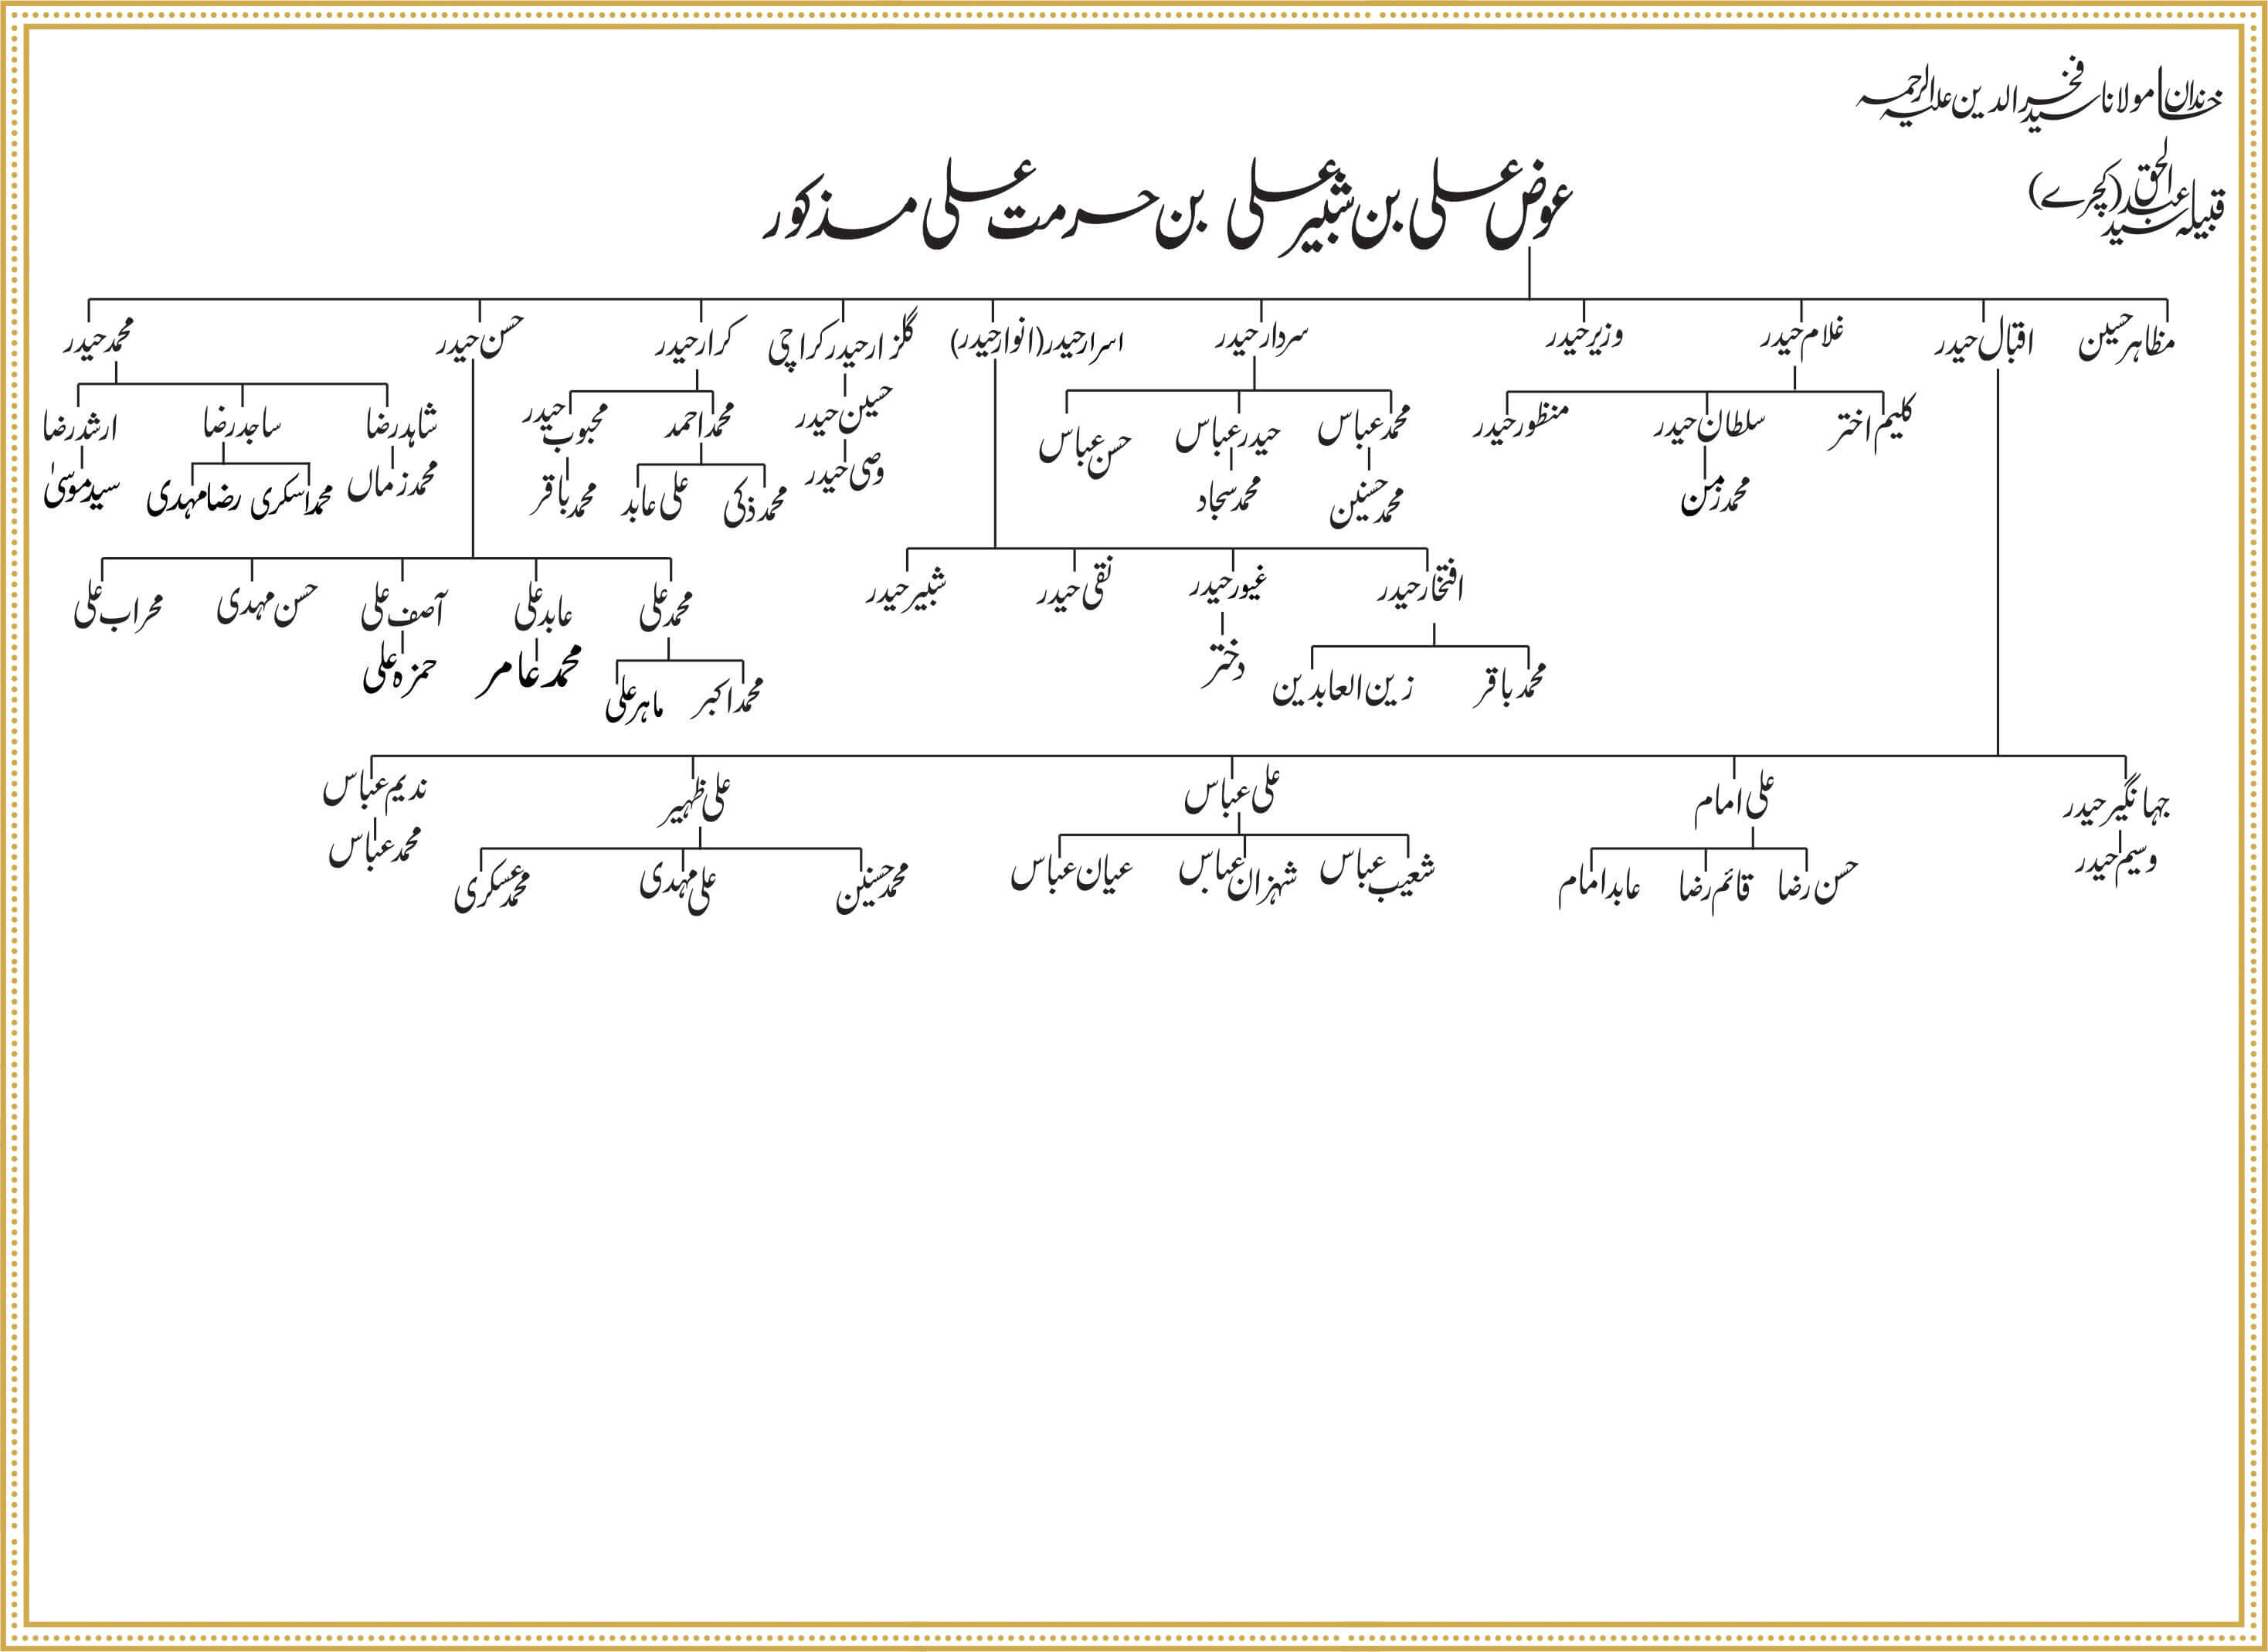 خاندان مولانا سید فخر الدین علیہ الرحمہ
قبیلہ سید عبد الحق (کچرے)
عوض علی بن شبیر علی بن حرمت علی مذکور
مظاہر حسین اقبال حیدر غلام حیدر وزیر حیدر سردار حیدر اسرار حیدر (انوار حیدر) گلزار حیدر کراچی کرار حیدر حسن حیدر محمد حیدر
کلیم اختر سلطان حیدر منظور حیدر محمد عباس حیدر عباس حسن عباس حسین حیدر محمد احمد محبوب حیدر شاہد رضا ساجد رضا ارشد رضا
محمد زمن محمد حسنین محمد سجاد وصی حیدر محمد ذکی علی عابد محمد باقر محمد زماں محمد اسکری رضا مہدی سید موسیٰ
افتخار حیدر غیور حیدر نقی حیدر شبیر حیدر محمد علی عابد علی آصف علی حسن مہدی محراب علی
محمد باقر زین العابدین دختر محمد اکبر ماہر علی محمد عامر حمزہ علی
جہانگیر حیدر علی امام علی عباس علی ظہیر ندیم عباس
وسیم حیدر حسن رضا قائم رضا عابد امام شعیب عباس شہزان عباس عیان عباس محمد حسنین علی مہدی محمد عسکری محمد عباس